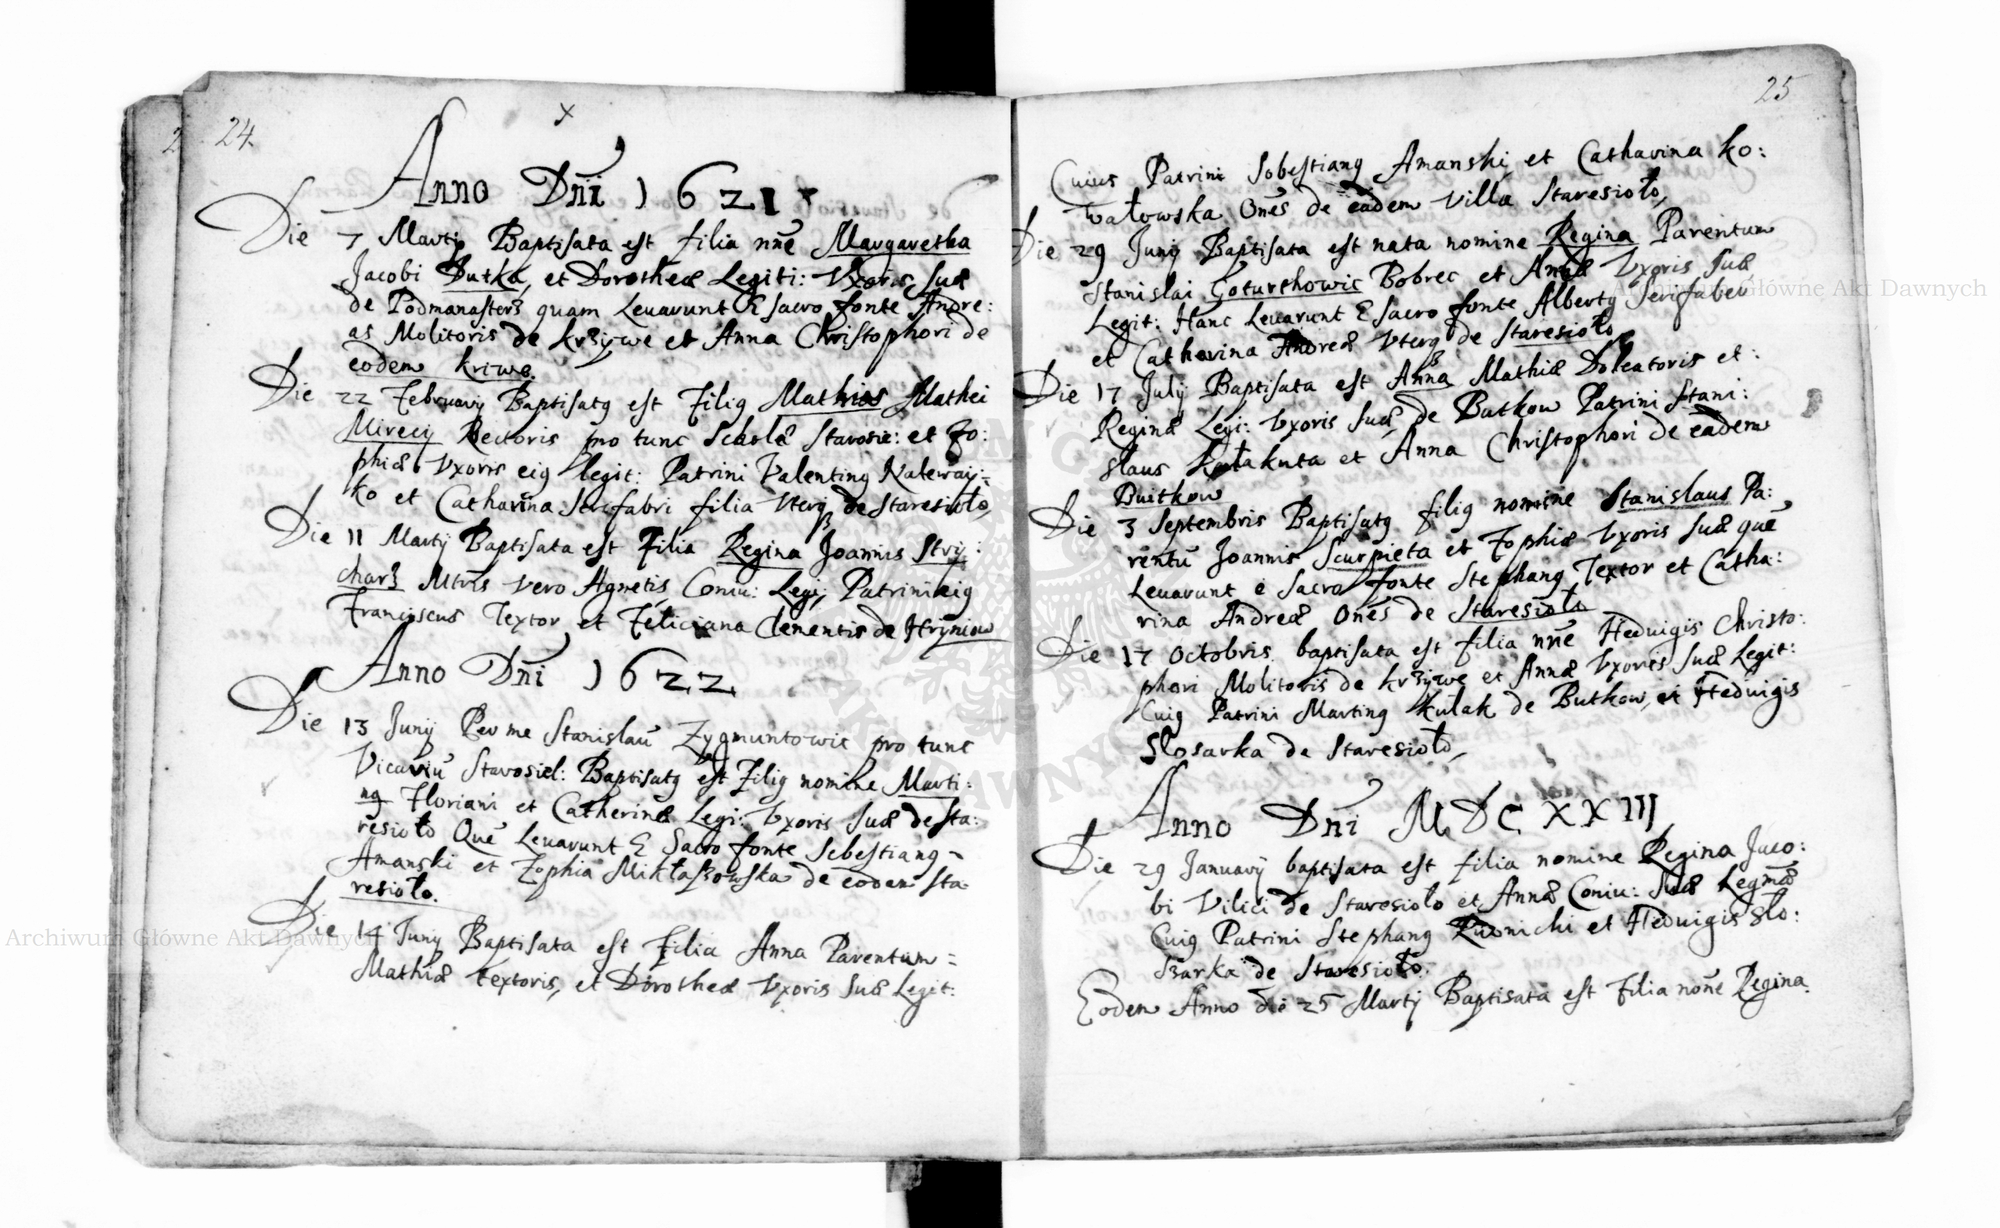 24.
x
Anno Dñi 1621
Die 7 Martij Baptisata est filia nñe Margaretha
Jacobi Dutka, et Dorotheæ Legiti: Vxoris Suæ
de Podmanasterz quam Leuarunt E sacro fonte Andre:
as Molitoris de krzywe et Anna Christophori de
eodem kriwe.
Die 22 Februarij Baptisatq est Filiq Mathias Mathei
Mirecij Rectoris pro tunc Scholæ Starosie: et Zo:
phiæ Vxoris eiq legit: Patrini Valentinq Nalewaij=
ko et Catharina Serifabri filia Vterq de Staresioło,
Die 11 Martij Baptisata est Filia Regina Joannis Strij:
charz Mtris vero Agnetis Coniu: Legi; Patrini eiq
Franciscus Textor et Feliciana Clementis de Hryniow
Anno Dñi 1622
Die 13 Junij Per me Stanislaũ Zygmuntowic pro tunc
Vicariũ Starosiel: Baptisatq est Filiq nomine Marti:
nq Floriani et Catherinæ Legi: Vxoris Suæ de Sta:
resioło Quẽ Leuarunt E Sacro fonte Sebestianq
Amanski et Zophia Mikłaszowska de eodem Sta
resioło.
Die 14 Junij Baptisata est Filia Anna Parentum =
Mathiæ textoris, et Dorotheæ Vxoris Suæ Legit:
25
Cuius Patrini Sobestianq Amanski et Catharina ko:
wałowska Oñes de eadem Villa Staresioło,
Die 29 Junij Baptisata est nata nomine Regina Parentum
Stanislai Goturthowic Bobrec et Annæ Vxoris Suæ
Legit: Hanc Leuarunt E sacro fonte Albertq Serifaber
et Catherina Andreæ Vterq de Staresioło
Die 17 Julij Baptisata est Anna Mathiæ Doleatoris et:
Reginæ Legi: Vxoris Suæ, de Butkow Patrini Stani:
slaus kułakuta et Anna Christophori de eadem
Buitkow
Die 3 Septembris Baptisatq filiq nomine Stanislaus Pa:
rentũ Joannis Scurpieta et Zophiæ Vxoris Suæ quẽ
Leuarunt e Sacro fonte Stephanq Textor et Catha:
rina Andreæ Oñes de Staresioło
Die 17 Octobris baptisata est filia nñe Heduigis Christo:
phori Molitoris de krzywe et Annæ Vxoris Suæ Legit:
Cuiq Patrini Martinq kułak de Butkow, et Heduigis
Slosarka de Staresioło,
Anno Dñi MDCXXIII
Die 29 Januarij baptisata est filia nomine Regina Jaco:
bi Vilici de Staresioło et Annæ Coniu: Suæ Legmæ
Cuiq Patrini Stephanq Rusnichi et Heduigis Slo:
szarka de Staresioło.
Eodem Anno die 25 Martij Baptisata est Filia noñe Regina.
Archiwum Główne Akt Dawnych
Archiwum Główne Akt Dawnych